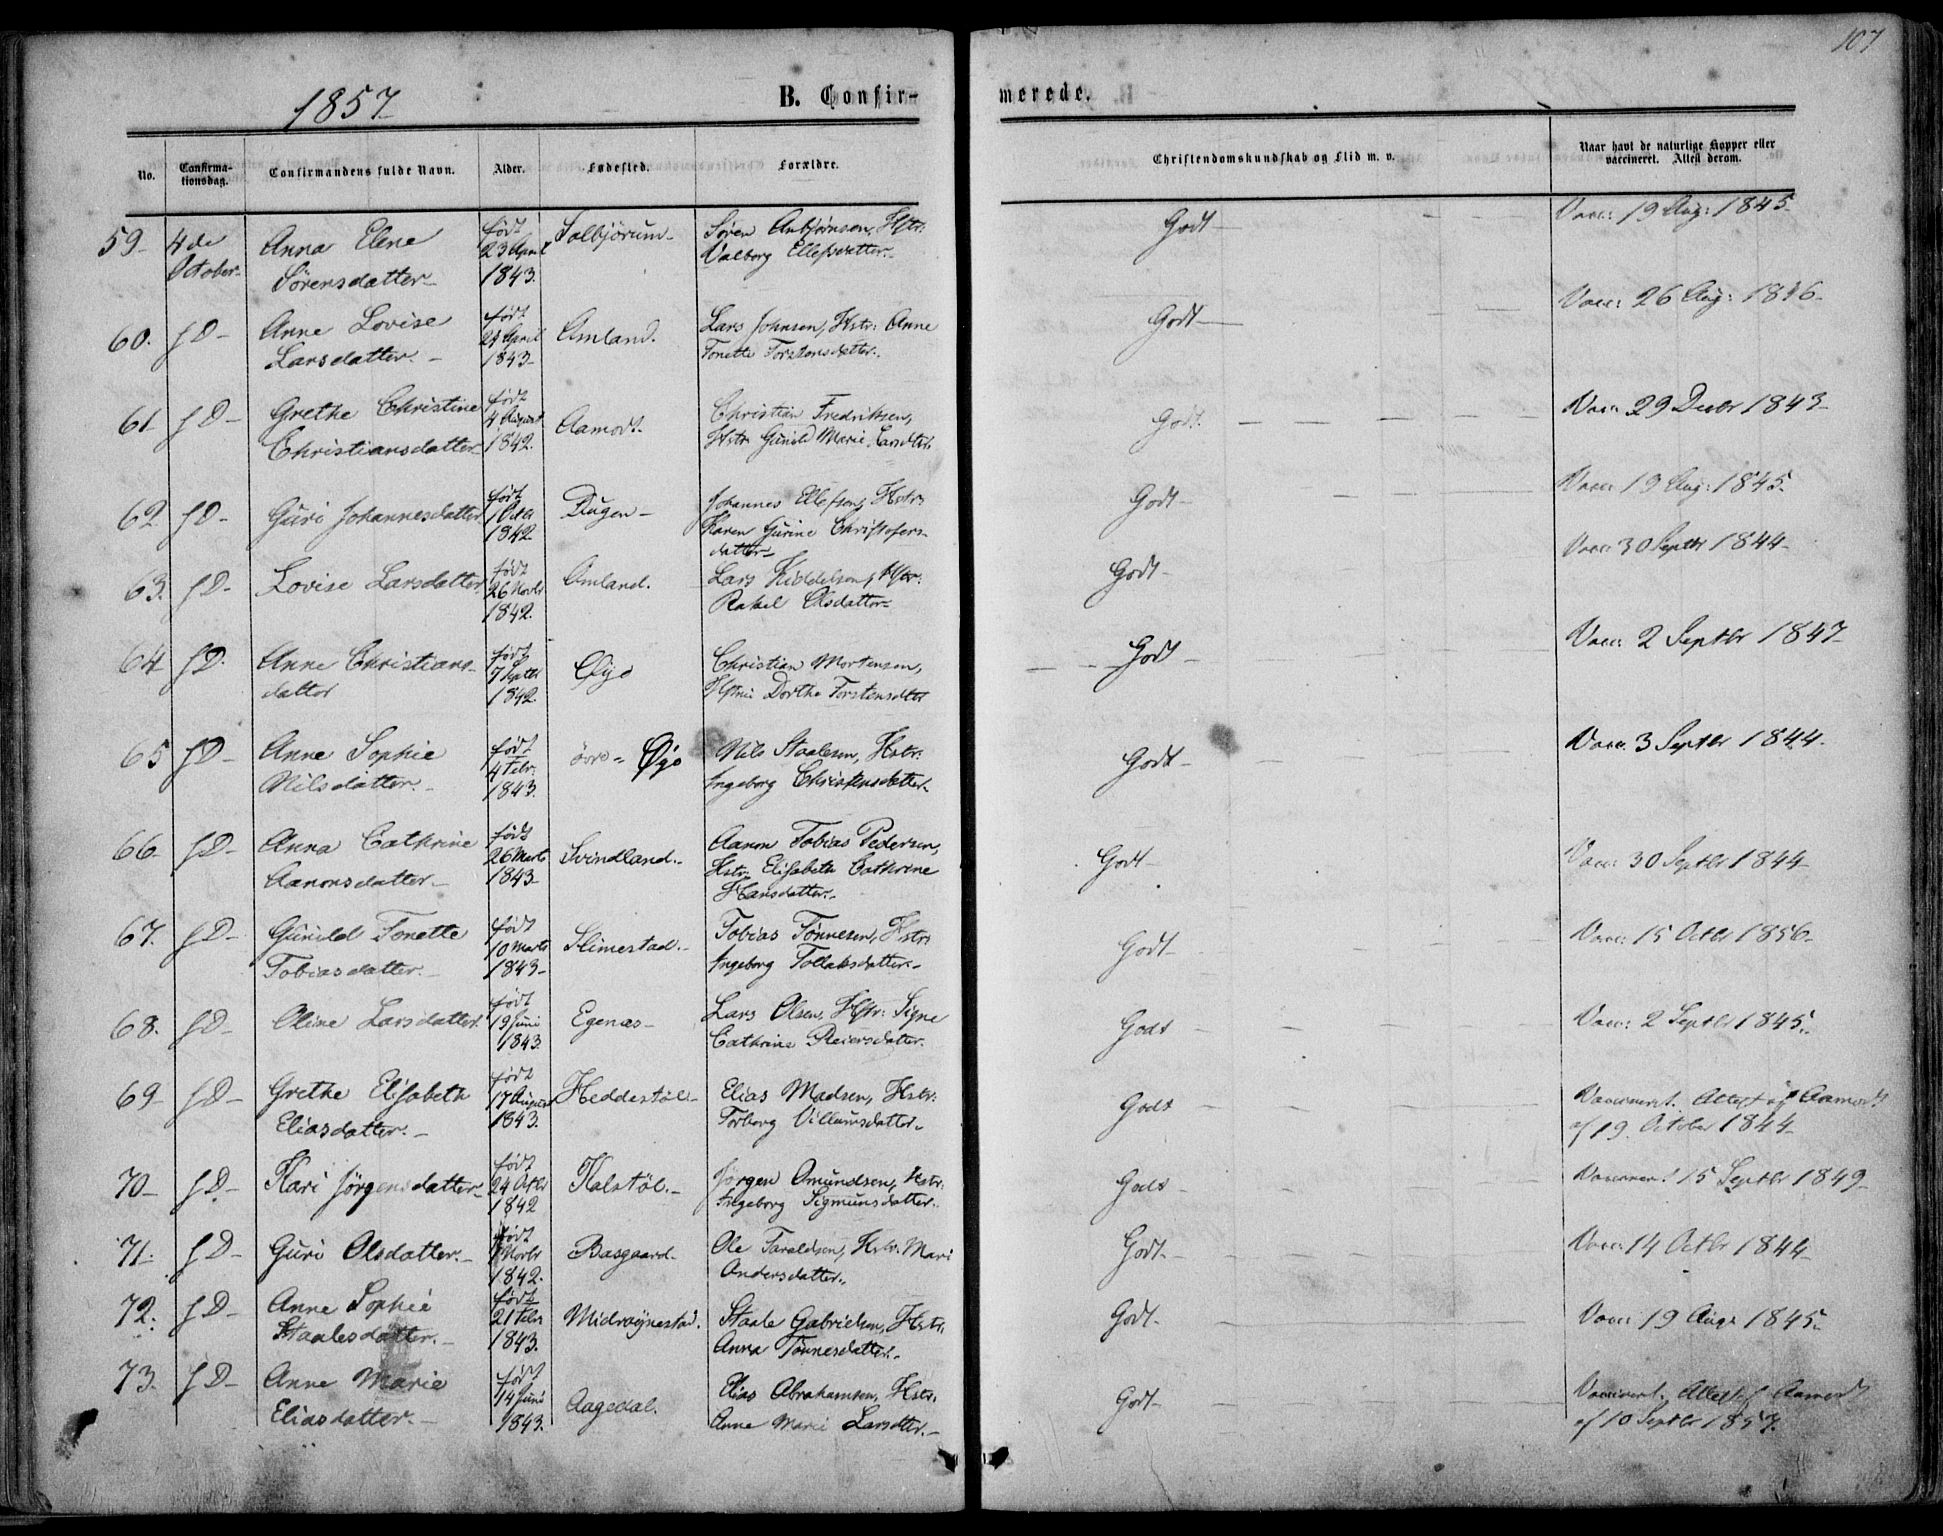 107
1857
B. Confirmerede.
No. Confirmationsdag. Confirmandens fulde Navn. Alder. Fødested. Forældre. Christendomskundskab og Flid m. v. Naar havt de naturlige Kopper eller vaccineret. Attest derom.
59 4de October Anna Elene Sørensdatter født 23 April 1843 Solbjørum Søren Anbjørnsen, Hstr: Valborg Ellefsdatter Godt Vacc: 19 Aug: 1845
60. sD Anne Lovise Larsdatter født 1843 Omland. Lars Johnsen, Hstr: Anne Tonette Torstensdatter Godt Vacc: 26 Aug:
61 sD Grethe Christine Christiansdatter født 4 August 1842. Aamodt. Christian Fredriksen, Hstr: Gunild Marie Larsdtr. Godt. Vacc: 29 Decbr 1843
62 sD Guri Johannesdatter født 1842 Dugen Johannes Ellefsen, Hstr: Karen Gurine Christofersdatter Godt Vacc: 19 Aug: 1845.
63. sD Lovise Larsdatter født 26 Novbr 1842. Omland. Lars Kiddelsen, Hstr: Rakel Olsdatter Godt Vacc: 30 Septbr 1844
64 sD. Anne Christiansdatter født 7 Septbr 1842. Øye Christian Mortensen, Hstru Dorthe Torstensdtr Godt Vacc: 2 Septbr 1847
65 sD Anne Sophie Nilsdatter født 4 Febr: 1843. øvre Øye Nils Staalesen, Hstr: Ingeborg Christensdatter Godt Vacc. 3 Septbr 1844.
66 sD Anna Cathrine Aanonsdatter født 26 Marts 1843 Svindland. Aanon Tobias Pedersen, Hstr: Elisabeth Cathrine Hansdatter Godt Vacc: 30 Septbr 1844
67. sD Gunild Tonette Tobiasdatter født 10 Marts 1843 Slimestad. Tobias Tønnesen, Hstr: Ingeborg Tollaksdatter Godt Vacc: 15 Octbr 1856
68. sD Oline Larsdatter født 19 Juni 1843. Egenæs Lars Olsen, Hstr: Signe Cathrine Reiersdatter. Godt Vacc: 2 Septbr 1845.
69 sD Grethe Elisabeth Eliasdatter født 17 August 1843. Heddestøl Elias Madsen, Hstr: Torborg Villumsdatter Godt Vaccineret. Attest af Aamodt af 19. October 1844
70 sD Kari Jørgensdatter født 24 Octbr 1842 Kalstøl. Jørgen Omundsen, Hstr: Ingeborg Sigmunsdatter. Godt 15 Septbr 1849
71. sD Guri Olsdatter. født Novbr 1842. Basgaard Ole Taraldsen, Hstr: Mari Andersdatter. Godt. Vacc: 14 Octbr 1844
72. sD Anne Sophie Staalesdatter. født 21 Febr 1843. Midrøynestad. Staale Gabrielsen, Hstr: Anna Tønnesdatter. Godt Vacc: 19 Aug: 1845
73. sD Anne Marie Eliasdatter. født 14 Juni 1843. Aagedal. Elias Abrahamsen, Hstr: Anne Marie Larsdtr. Godt Vaccineret. Attest af Aamodt af 10 Septbr 1857.